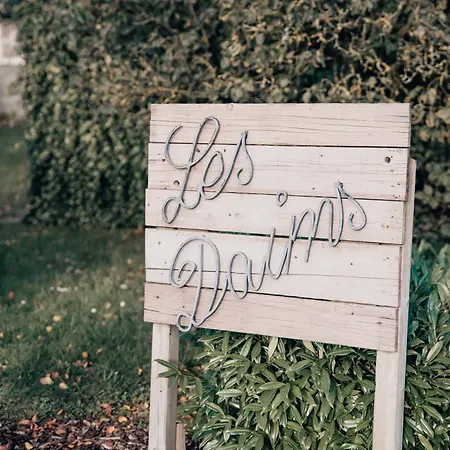 Les
Daims